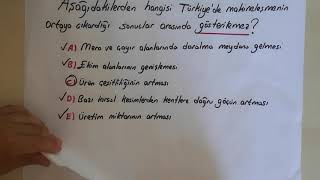 Aşağıdakilerden hangisi Türkiye'de makineleşmenin
ortaya çıkardığı sonuçlar arasında gösterilemez?
A) Mera ve çayır alanlarında daralma meydana gelmesi
B) Ekim alanlarının genişlemesi
C) Ürün çeşitliliğinin artması
D) Bazı kırsal kesimlerden kentlere doğru göçün artması
E) Üretim miktarının artması